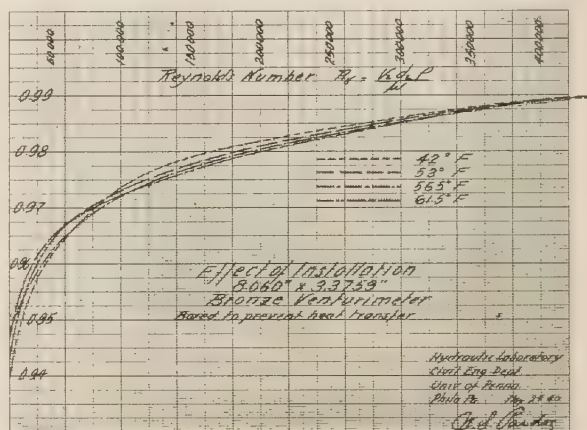 50000 100000 150000 200000 250000 300000 350000 400000
Reynolds Number R₂ = V₂d₂ρ/μ
0.99
0.98
0.97
0.96
0.95
0.94
42° F
53° F
56.5° F
61.5° F
Effect of Installation
8.060" x 3.3759"
Bronze Venturimeter
to prevent heat transfer
Hydraulic Laboratory
Civil Eng Dept
Univ of Penna
Phila Pa